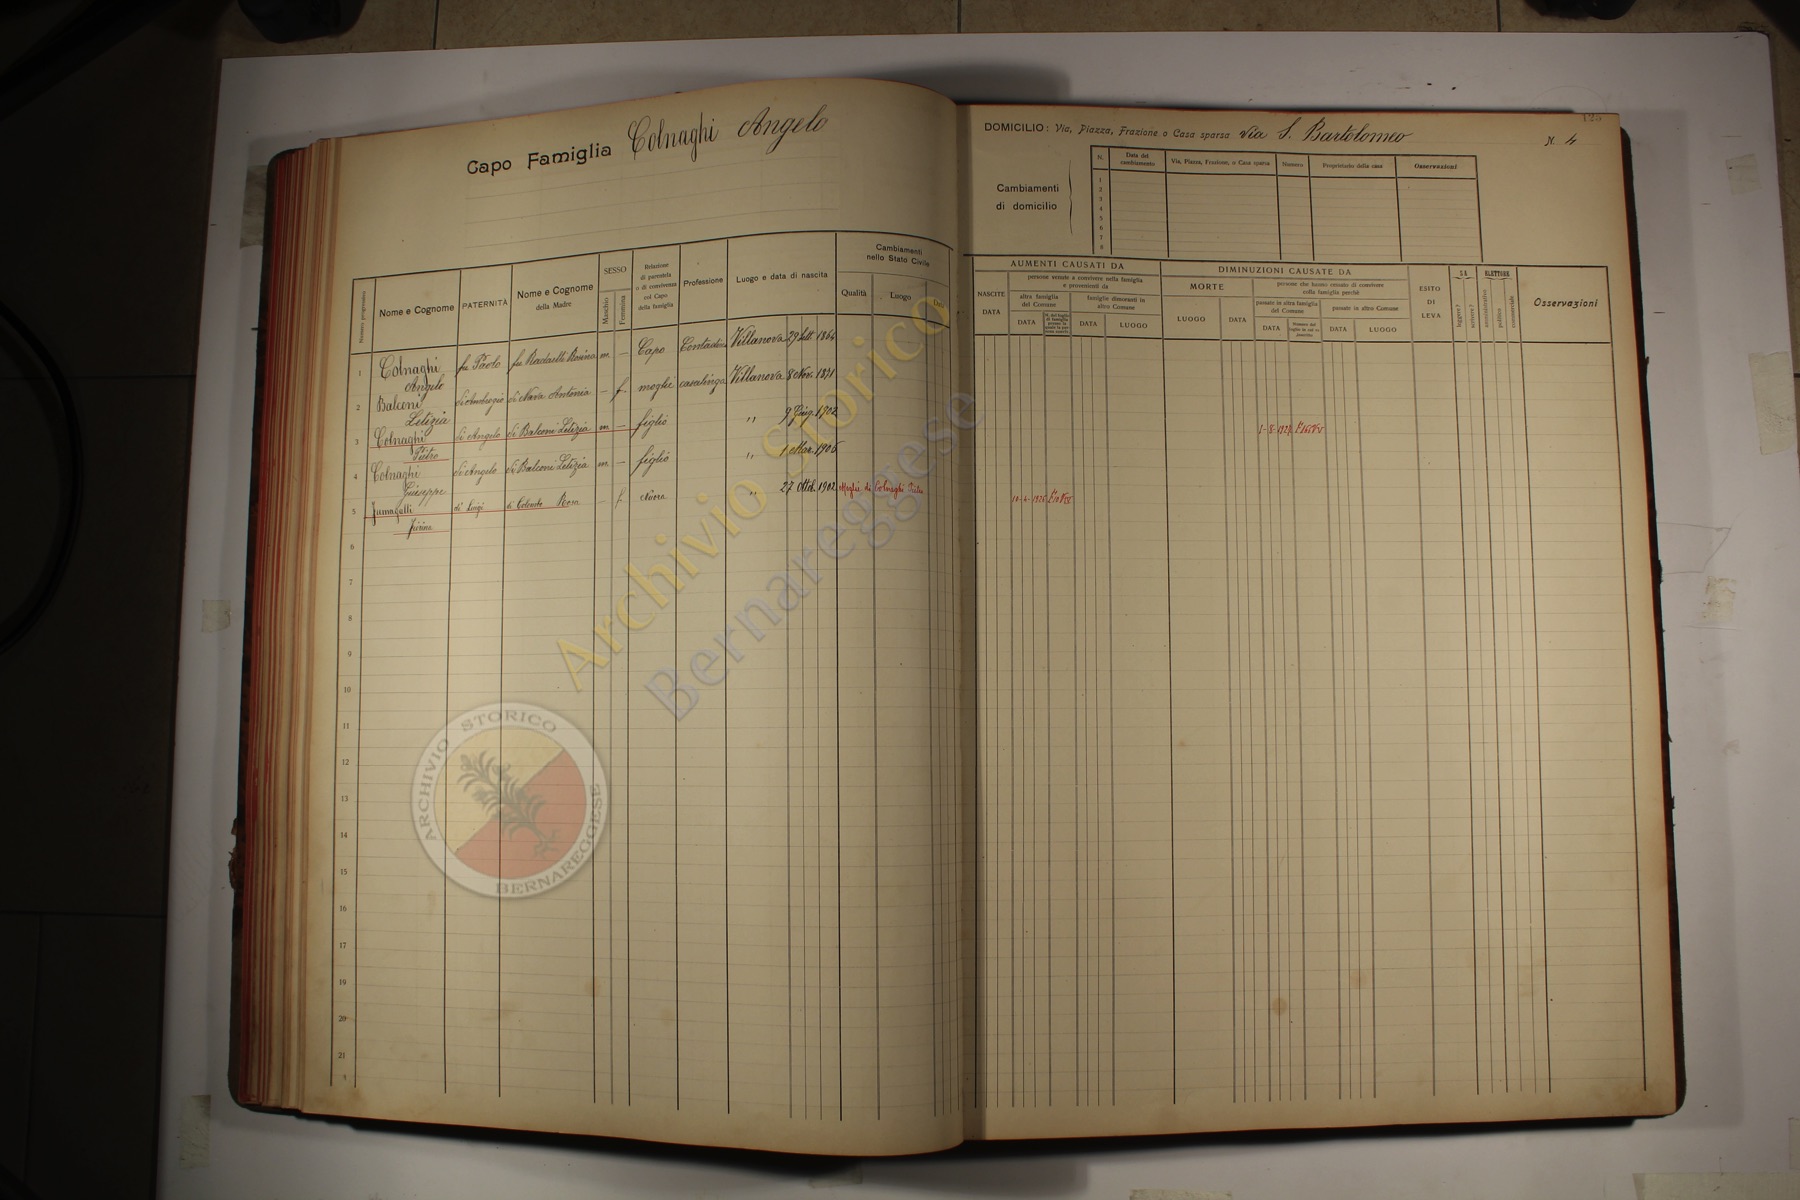 Capo Famiglia Colnaghi Angelo
Numero progressivo
Nome e Cognome
PATERNITÀ
Nome e Cognome
della Madre
SESSO
Maschio
Femmina
Relazione
di parentela
o di convivenza
col Capo
della famiglia
Professione
Luogo e data di nascita
Cambiamenti
nello Stato Civile
Qualità
Luogo
Data
1 Colnaghi fu Paolo fu Radaelli Rosina m — Capo Contadino Villanova 29 Sett. 1864
Angelo
2 Balconi di Ambrogio di Nava Antonia — f. moglie casalinga Villanova 8 Nov. 1871
Letizia
3 Colnaghi di Angelo di Balconi Letizia m — figlio " 9 Giug. 1902
Pietro
4 Colnaghi di Angelo di Balconi Letizia m — figlio " 1 Mar. 1906
Giuseppe
5 Fumagalli di Luigi di Colombo Rosa — f. Nuora " 27 Ott. 1902 Moglie di Colnaghi Pietro
Pierina
6
7
8
9
10
11
12
13
14
15
16
17
18
19
20
21
125
DOMICILIO: Via, Piazza, Frazione o Casa sparsa via S. Bartolomeo N. 4
Cambiamenti
di domicilio
N.
Data del
cambiamento
Via, Piazza, Frazione, o Casa sparsa
Numero
Proprietario della casa
Osservazioni
1
2
3
4
5
6
7
8
AUMENTI CAUSATI DA
NASCITE
DATA
persone venute a convivere nella famiglia
e provenienti da
altra famiglia
del Comune
DATA
famiglie dimoranti in
altro Comune
DATA
LUOGO
DIMINUZIONI CAUSATE DA
MORTE
LUOGO
DATA
persone che hanno cessato di convivere
colla famiglia perchè
passate in altra famiglia
del Comune
DATA
passate in altro Comune
DATA
LUOGO
ESITO
DI
LEVA
SA
leggere?
scrivere?
ELETTORE
amministrativo
politico
commerciale
Osservazioni
Archivio Storico
Bernareggese
ARCHIVIO STORICO
BERNAREGGESE